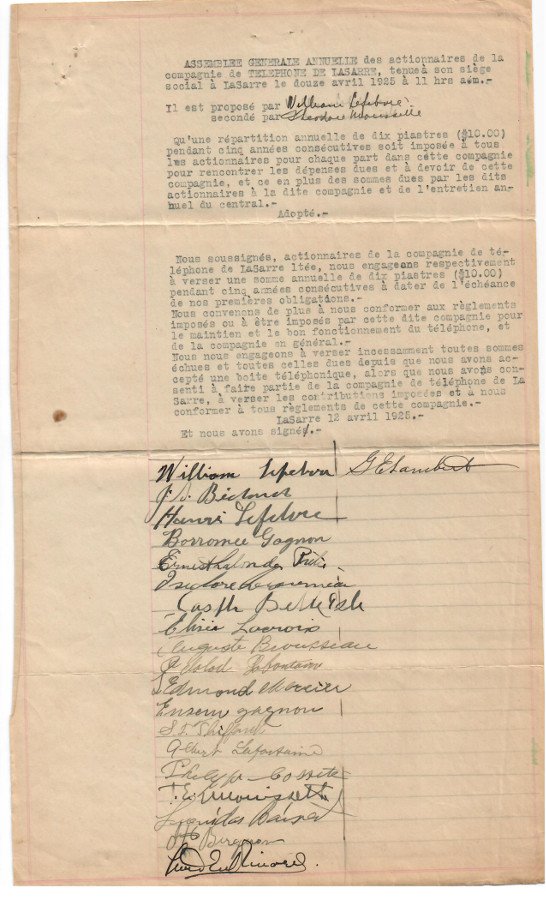 ASSEMBLEE GENERALE ANNUELLE des actionnaires de la
compagnie de TELEPHONE DE LASARRE, tenue à son siège
social à LaSarre le douze avril 1925 à 11 hrs a.m.-
Il est proposé par William Lefebvre
secondé par Theodore
Qu'une répartition annuelle de dix piastres ($10.00)
pendant cinq années consécutives soit imposée à tous
les actionnaires pour chaque part dans cette compagnie
pour rencontrer les dépenses dues et à devoir de cette
compagnie, et ce en plus des sommes dues par les dits
actionnaires à la dite compagnie et de l'entretien an-
nuel du central.-
Adopté.-
Nous soussignés, actionnaires de la compagnie de té-
léphone de LaSarre ltée, nous engageons respectivement
à verser une somme annuelle de dix piastres ($10.00)
pendant cinq années consécutives à dater de l'échéance
de nos premières obligations.-
Nous convenons de plus à nous conformer aux règlements
imposés ou à être imposés par cette dite compagnie pour
le maintien et le bon fonctionnement du téléphone, et
de la compagnie en général.-
Nous nous engageons à verser incessamment toutes sommes
échues et toutes celles dues depuis que nous avons ac-
cepté une boite téléphonique, alors que nous avons con-
senti à faire partie de la compagnie de téléphone de La
Sarre, à verser les contributions imposées et à nous
conformer à tous règlements de cette compagnie.-
LaSarre 12 avril 1925.-
Et nous avons signé.-
William Lefebvre G E Lambert
Henri Lefebvre
Borromée Gagnon
Elisée Lacroix
Auguste Brousseau
Lafontaine
Edmond Mercier
Gagnon
Albert Lafontaine
Cossette
Bergeron